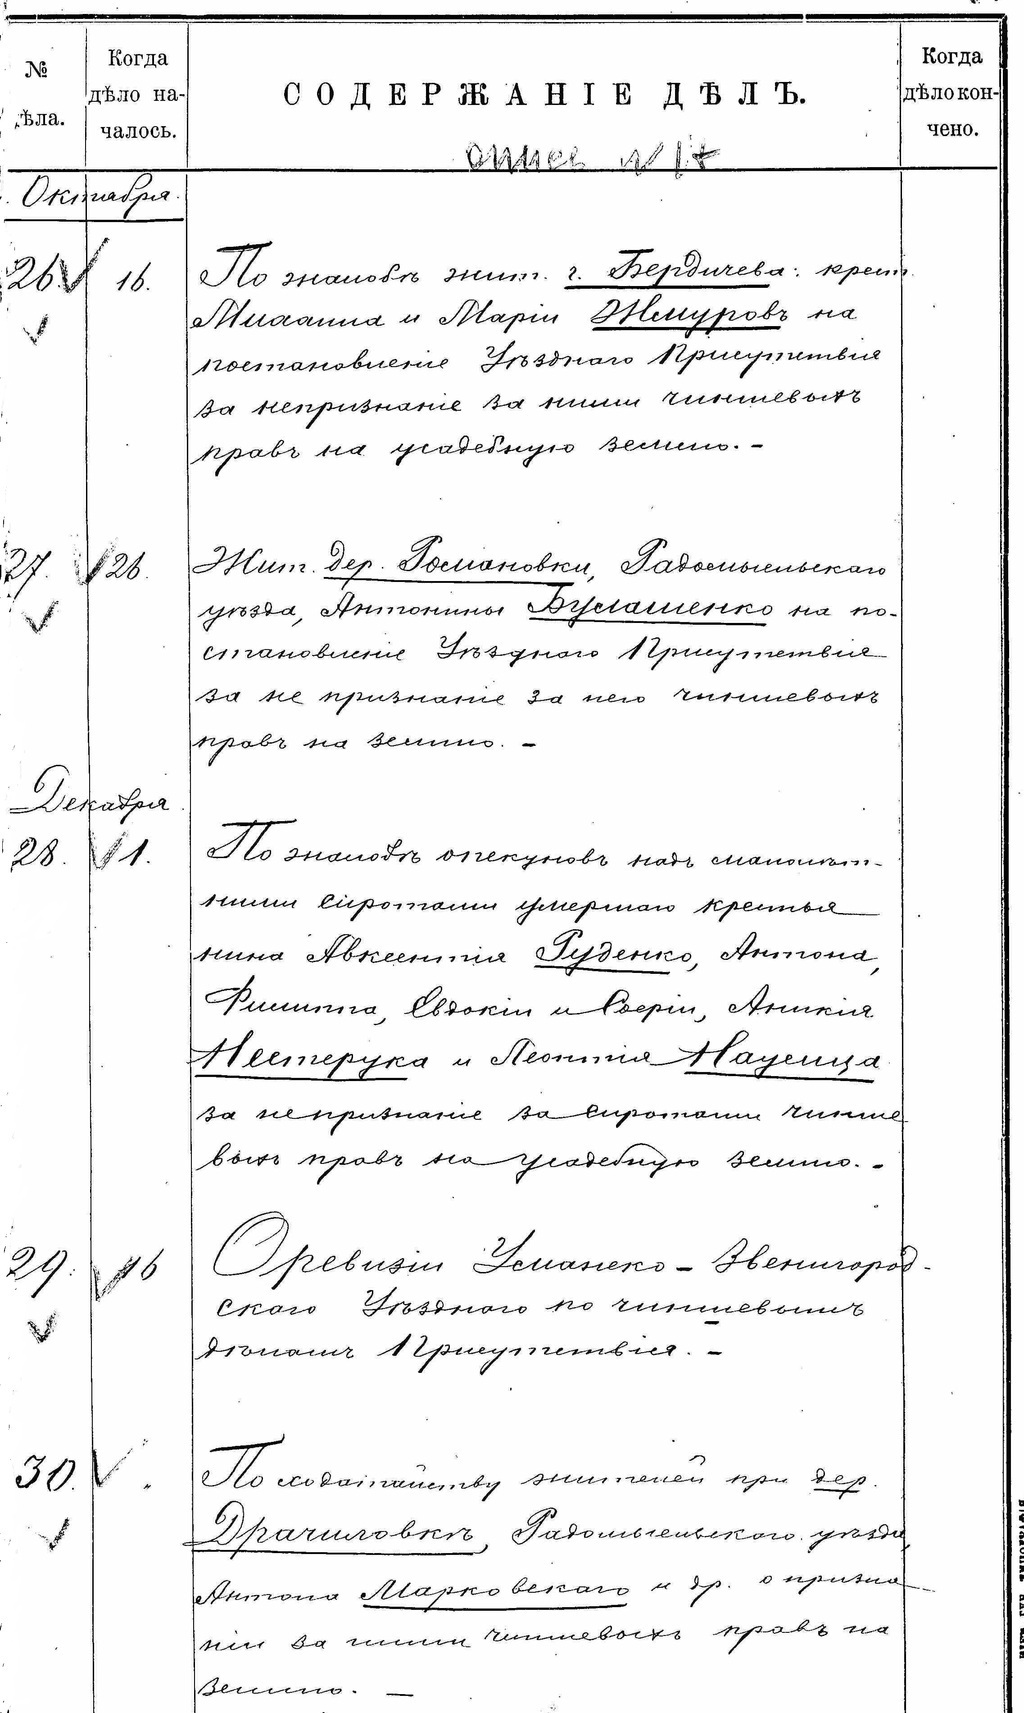 №
дѣла.
Когда
дѣло на-
чалось.
СОДЕРЖАНІЕ ДѢЛЪ.
Когда
дѣло кон-
чено.
Октября.
26 16. По жалобѣ жит. г. Бердичева: крест.
и Маріи Жмуровъ на
постановленіе Уѣзднаго Присутствія
за непризнаніе за ними чиншевыхъ
правъ на усадебную землю. –
27. 26. Жит. дер. Романовки, Радомысльскаго
уѣзда, Антонины Буглашенко на по-
становленіе Уѣзднаго Присутствія
за не признаніе за нею чиншевыхъ
правъ на землю. –
Декабря
28. 1. По жалобѣ опекуновъ надъ малолѣт-
ними сиротами умершаго крестья
нина Авксентія Руденко, Антона,
Филиппа, Евдокіи и Аникія
Нестерука и Леонтія
за непризнаніе за сиротами чинше
выхъ правъ на усадебную землю. –
29. 16 О ревизіи Уманско – Звенигород-
скаго Уѣзднаго по чиншевымъ
дѣламъ Присутствія. –
30. По ходатайству жителей при дер.
Драчиловкѣ, Радомысльскаго уѣзда,
Антона Марковскаго и др. о призна
ніи за ними чиншевыхъ правъ на
землю. –